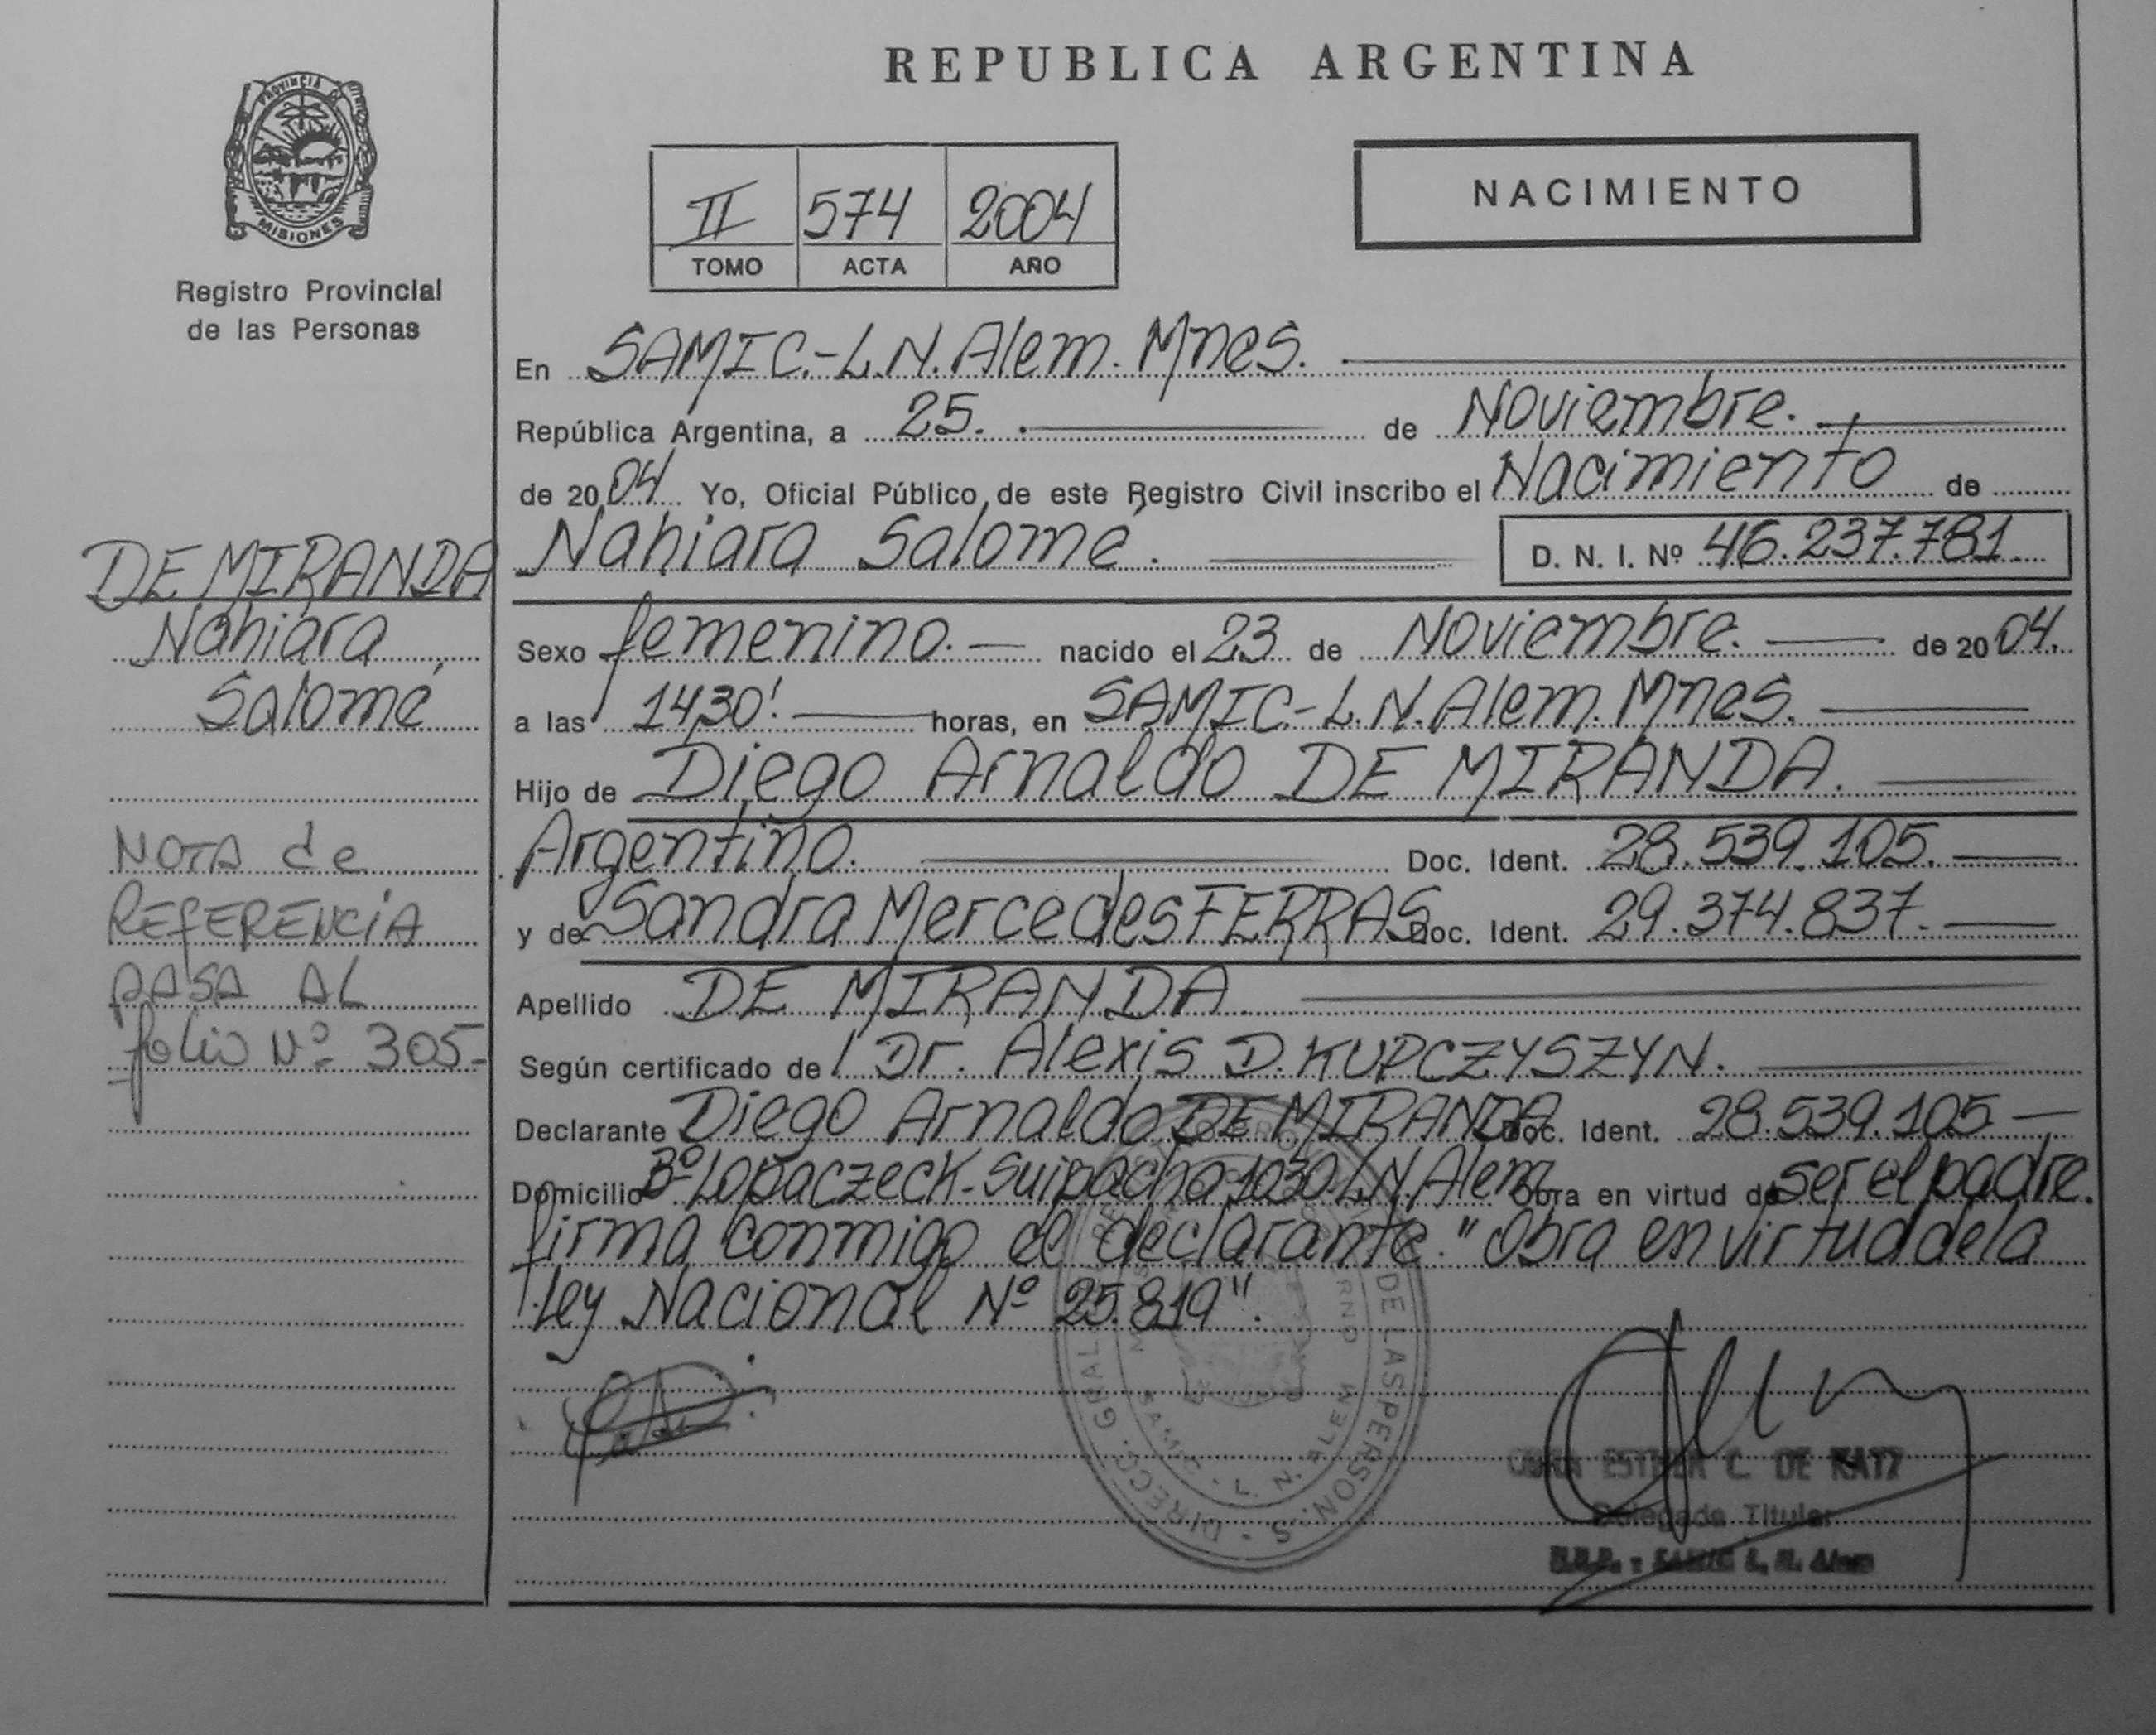 REPUBLICA ARGENTINA
PROVINCIA DE
MISIONES
Registro Provincial
de las Personas
NACIMIENTO
II 574 2004
TOMO ACTA AÑO
En SAMIC.-L.N.Alem. Mnes.
República Argentina, a 25. de Noviembre.
de 2004 Yo, Oficial Público de este Registro Civil inscribo el Nacimiento de
Nahiara Salomé. D. N. I. Nº 46.237.781.
DE MIRANDA
Nahiara
Salomé
Sexo femenino. nacido el 23 de Noviembre. de 2004.
a las 14,30'. horas, en SAMIC.-L.N.Alem. Mnes.
Hijo de Diego Arnaldo DE MIRANDA.
Argentino. Doc. Ident. 28.539.105.
y de Sandra Mercedes FERRAS Doc. Ident. 29.374.837.
Apellido DE MIRANDA
Según certificado de Dr. Alexis D. KUPCZYSZYN.
Declarante Diego Arnaldo DE MIRANDA Doc. Ident. 28.539.105
Domicilio Bº Lopaczeck-Suipacha 1030-L.N.Alem Obra en virtud de ser el padre.
firma conmigo el declarante. "Obra en virtud de la
ley Nacional Nº 25.819".
NOTA de
REFERENCIA
PASA AL
folio Nº 305-
ESTHER C. DE KATZ
Delegada Titular
L. N. Alem
DIRECC. GRAL. DE LAS PERSONAS
SAMIC - L. N. ALEM